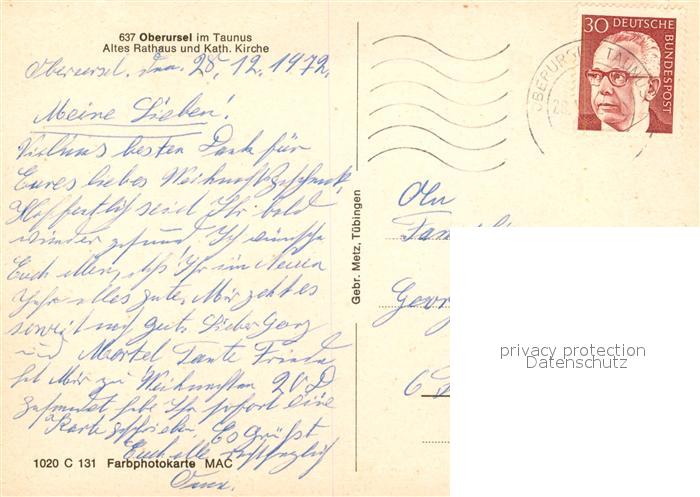 637 Oberursel im Taunus
Altes Rathaus und Kath. Kirche
Oberursel, Den 28.12.1972.
Meine Lieben!
besten Dank für
Eures liebes Weihnachtsgeschenk,
Hoffentlich seid Ihr bald
wieder gesund! Ich wünsche
Euch allen, daß Ihr im Neuen
Jahr alles gute. Mir geht es
soweit noch gut. Lieber Georg
und Martel Tante Frieda
hat Mir zu Weihnachten 20 D
habe Ihr sofort eine
Karte geschrieben. Es Grüßt
Euch alle
Oma.
1020 C 131 Farbphotokarte MAC
Gebr. Metz, Tübingen
30 DEUTSCHE BUNDESPOST
OBERURSEL TAUNUS
28
An
Fam
Georg
6
privacy protection
Datenschutz